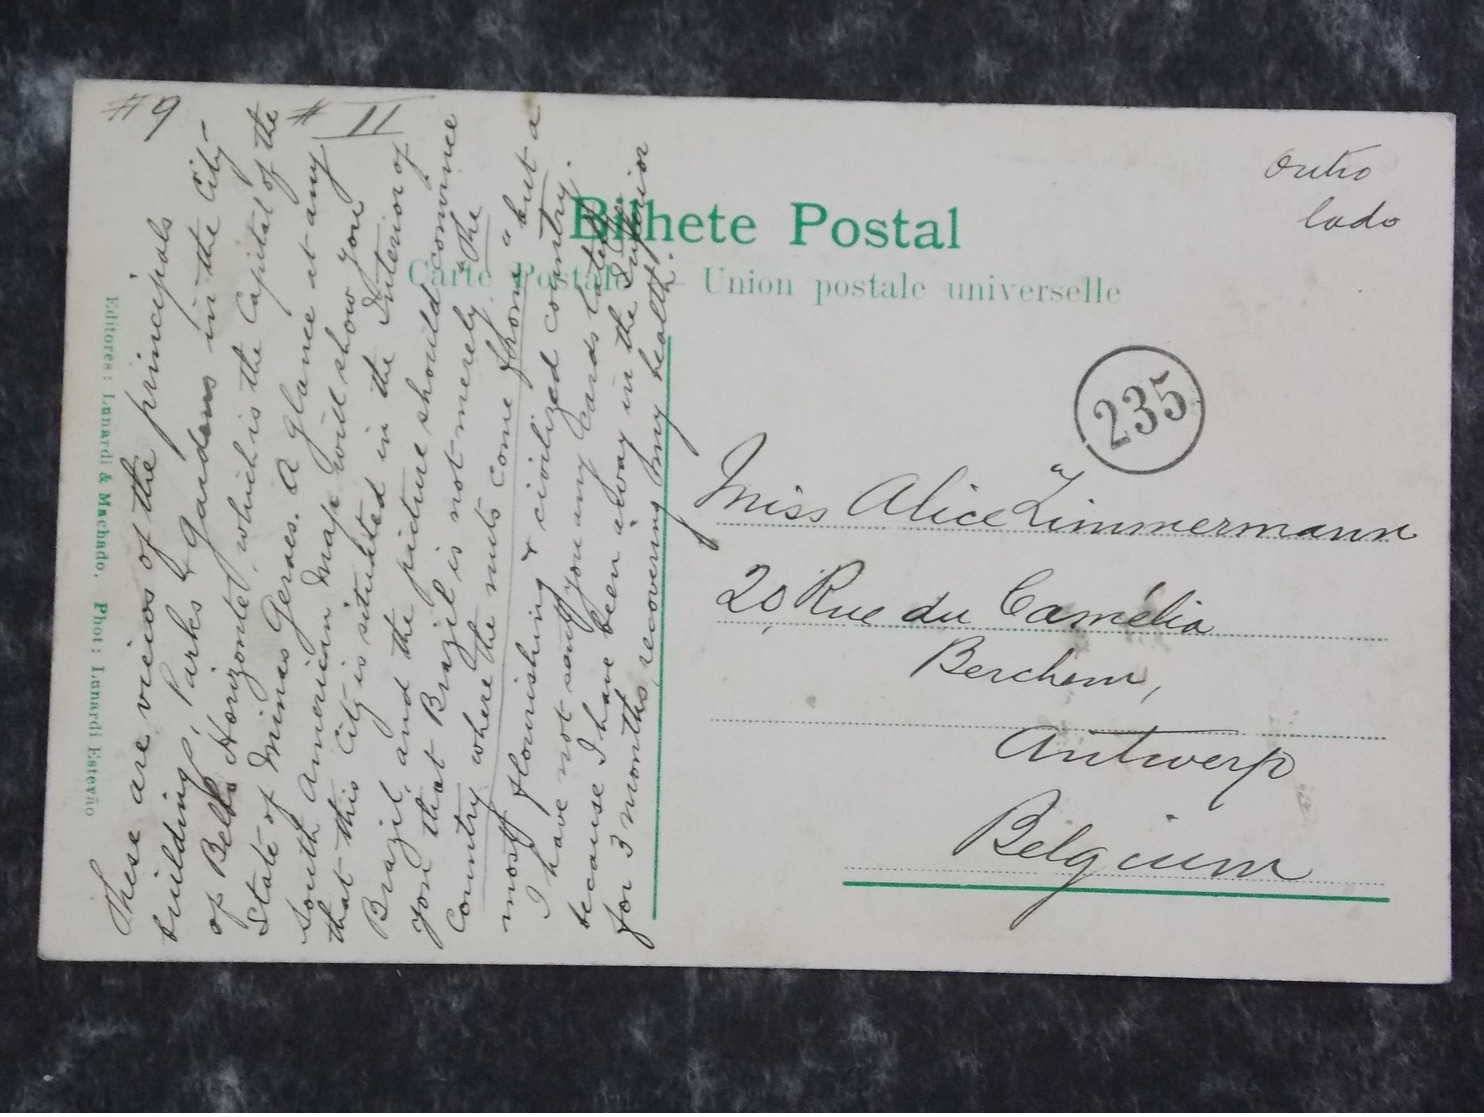 #9
# II
These are views of the principals
buildings, Parks & Gardens in the City-
of Bello Horizonte, which is the Capital of the
State of Minas Geraes. A glance at any
South American Map will show you
that this City is situated in the Interior of
Brazil, and the picture should convince
you that Brazil is not merely "the
Country where the nuts come from" but a
most flourishing & civilized country.
I have not sent you any cards lately
because I have been away in the Interior
for 3 months, recovering my health.
Editores: Lunardi & Machado. Phot: Lunardi Estevão
Bilhete Postal
Carte Postale — Union postale universelle
outro
lado
235
Miss Alice Zimmermann
20, Rue du Camélia
Berchem,
Antwerp
Belgium